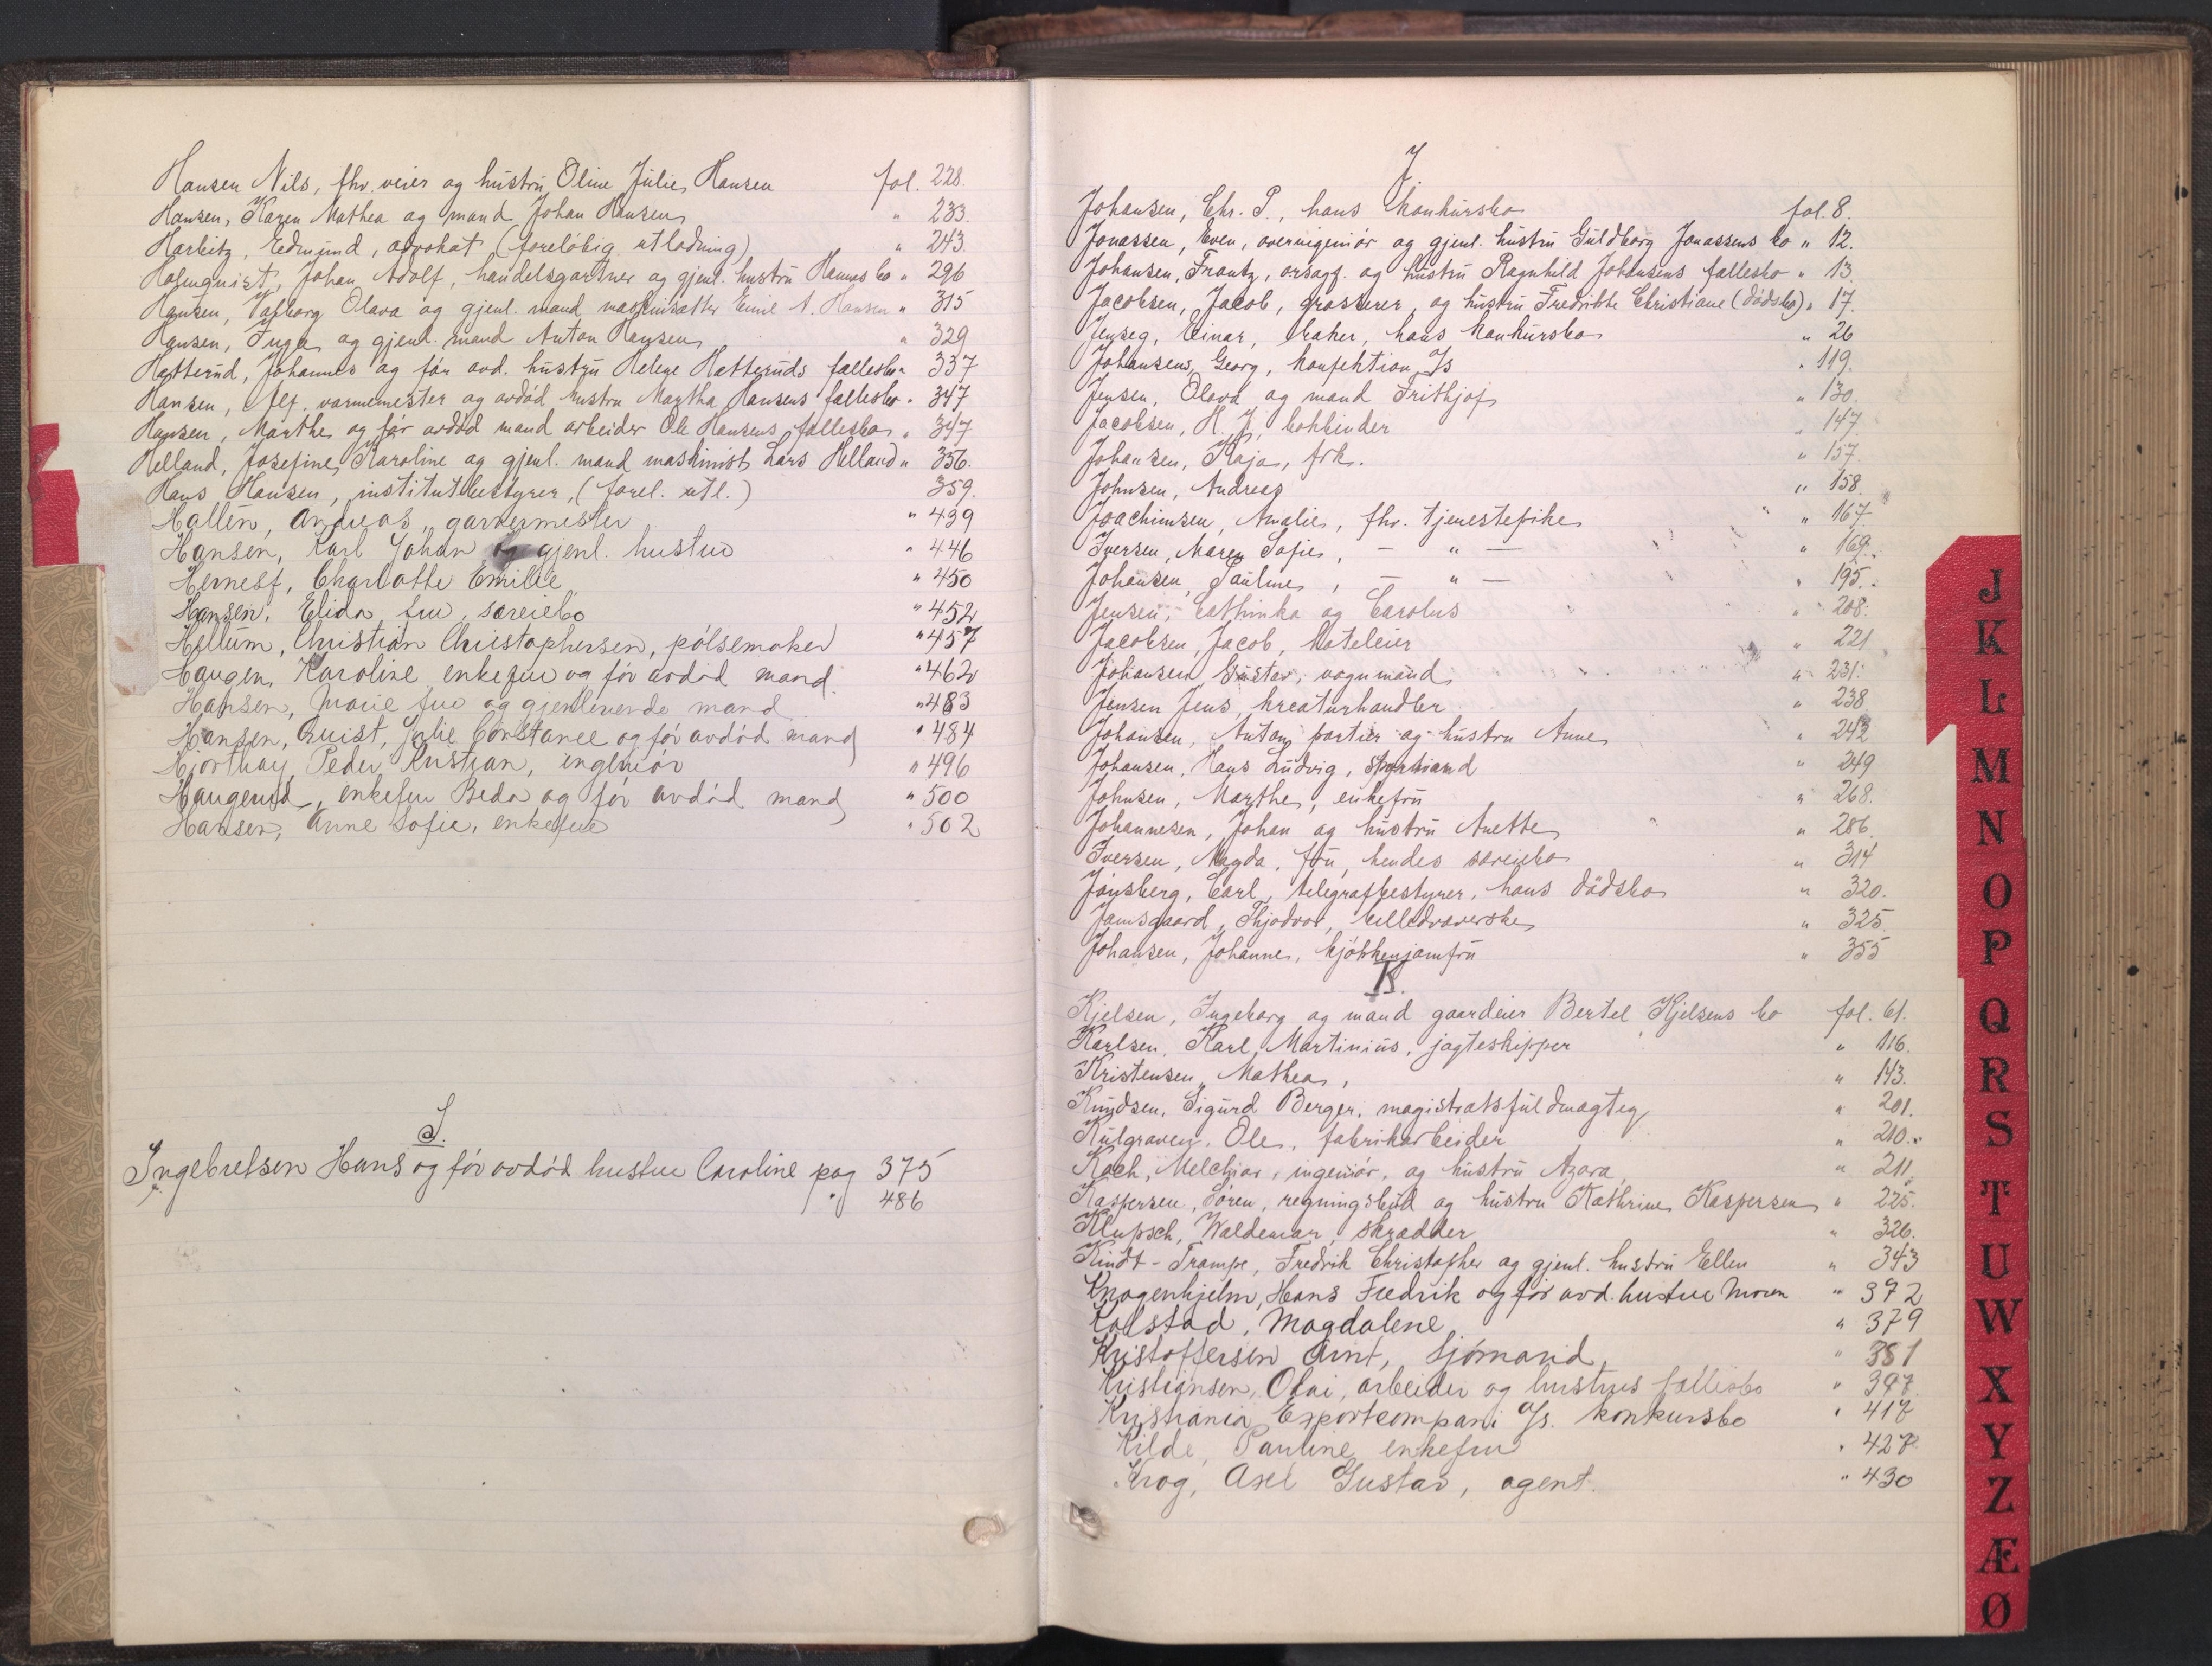 Hansen Nils, fhv. veier og hustru Oline Julie Hansen fol. 228.
Hansen, Karen Mathea og mand Johan Hansen " 233.
Harbitz, Edmund, advokat (foreløbig utlodning) " 243.
Holmquist, Johan Adolf, handelsgartner og gjenl. hustru Hannas bo " 296
Hansen, Valborg Olava og gjenl. mand maskinsætter Emil A. Hansen " 315
Hansen, Inga og gjenl. mand Anton Hansen " 329
Hatterud, Johannes og før avd. hustru Helene Hatteruds fællesbo " 337
Hansen, Alf. varmemester og avdød hustru Martha Hansens fællesbo " 347
Hansen, Marthe og før avdød mand arbeider Ole Hansens fællesbo " 347
Helland, Josefine Karoline og gjenl. mand maskinist Lars Helland " 356.
Hans Hansen, institutbestyrer, (forel. utl.) 359.
Hallén, Andreas, garvermester " 439
Hansen, Karl Johan og gjenl. hustru " 446
Hernest, Charlotte Emilie " 450
Hansen, Elida fru, særeiebo " 452
Hellum, Christian Christophersen, pølsemaker " 457
Haugen, Karoline enkefru og før avdød mand " 462
Hansen, Marie fru og gjenlevende mand " 483
Hansen, Quist, Julie Constance og før avdød mand " 484
Hjorthøy, Peder Kristian, ingeniør " 496
Haugerud, enkefru Beda og før avdød mand " 500
Hansen, Anne Sofie, enkefrue " 502
I.
Ingebretsen Hans og før avdød hustru Caroline pag 375
" 486
J.
Johansen, Chr. P., hans konkursbo fol. 8.
Jonassen, Even, overingeniør og gjenl. hustru Guldborg Jonassens bo " 12.
Johansen, Frantz, orsagf. og hustru Ragnhild Johansens fællesbo " 13.
Jacobsen, Jacob, grosserer, og hustru Fredrikke Christiane (dødsbo) " 17.
Jensen, Einar, baker, hans konkursbo " 26
Johansens, Georg, konfektion A/S " 119.
Jensen, Olava og mand Frithjof " 130.
Jacobsen, H. J. bokbinder " 147
Johansen, Kaja, frk. " 157.
Johnsen, Andreas " 158.
Joachimsen, Amalie, fhv. tjenestepike " 167.
Iversen, Maren Sofie, — " — " 169.
Johansen, Pauline, — " — " 195.
Jensen, Cathinka og Carolus " 208.
Jacobsen, Jacob, hoteleier " 221
Johansen, Gustav, vognmand " 231.
Jensen Jens, kreaturhandler " 238
Johansen, Anton portier og hustru Anne " 242
Johansen, Hans Ludvig, " 249
Johnsen, Marthe, enkefru " 268.
Johannesen, Johan og hustru Anette " 286.
Iversen, Magda, fru, hendes særeiebo " 314
Jónsberg, Carl, telegrafbestyrer, hans dødsbo " 320.
Jamsgaard, Thjodvor, billedvæverske " 325.
Johansen, Johanne, kjøkkenjomfru " 355
K.
Kjelsen, Ingeborg og mand gaardeier Bertel Kjelsens bo fol. 61.
Karlsen, Karl Martinius, jagteskipper " 116.
Kristensen, Mathea, " 143.
Knudsen, Sigurd Berger, magistratsfuldmægtig " 201.
Kulgraven, Ole, fabrikarbeider " 210.
Koch, Melchior, ingeniør, og hustru Azora " 211
Kaspersen, Søren, regningsbud og hustru Kathrine Kaspersen " 225.
Klupsch, Waldemar, skrædder " 326.
Kindt-Trampe, Fredrik Christopher og gjenl. hustru Ellen " 343
Knagenhjelm, Hans Fredrik og før avd. hustru Maren " 372
Kolstad, Magdalene " 379
Kristoffersen Arnt, Sjømand " 381
Kristiansen, Olai, arbeider og hustrus fællesbo " 397
Kristiania Exportcompani A/S. konkursbo " 417
Kilde, Pauline enkefru " 427
Krog, Axel Gustav, agent. " 430
J
K
L
M
N
O
P
Q
R
S
T
U
W
X
Y
Z
Æ
Ø